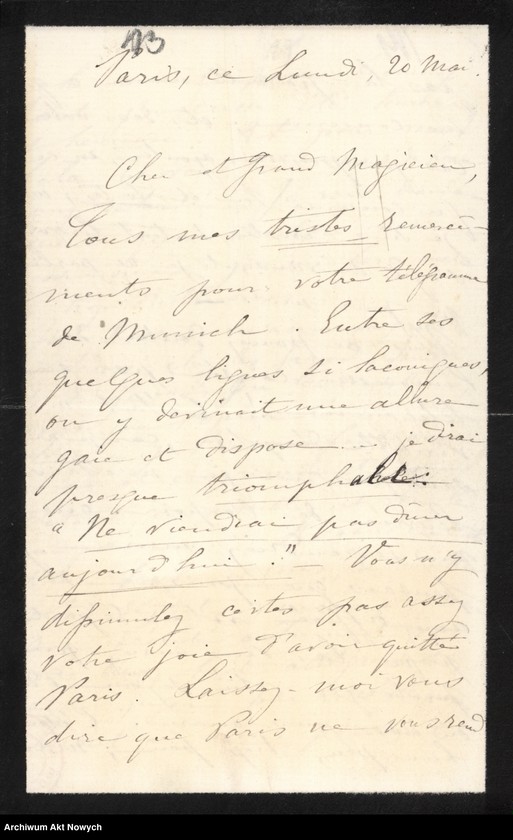 113
Paris, ce Lundi, 20 Mai.
Cher et Grand Magicien,
Tous mes tristes remerci-
ments pour votre télégramme
de Munich. Entre ses
quelques lignes si laconiques,
on y devinait une allure
gaie et dispose .... je dirai
presque triomphale:
"Ne viendrai pas dîner
aujourd'hui!" - Vous n'y
dissimulez certes pas assez
votre joie d'avoir quitté
Paris. Laissez-moi vous
dire que Paris ne vous rend
Archiwum Akt Nowych